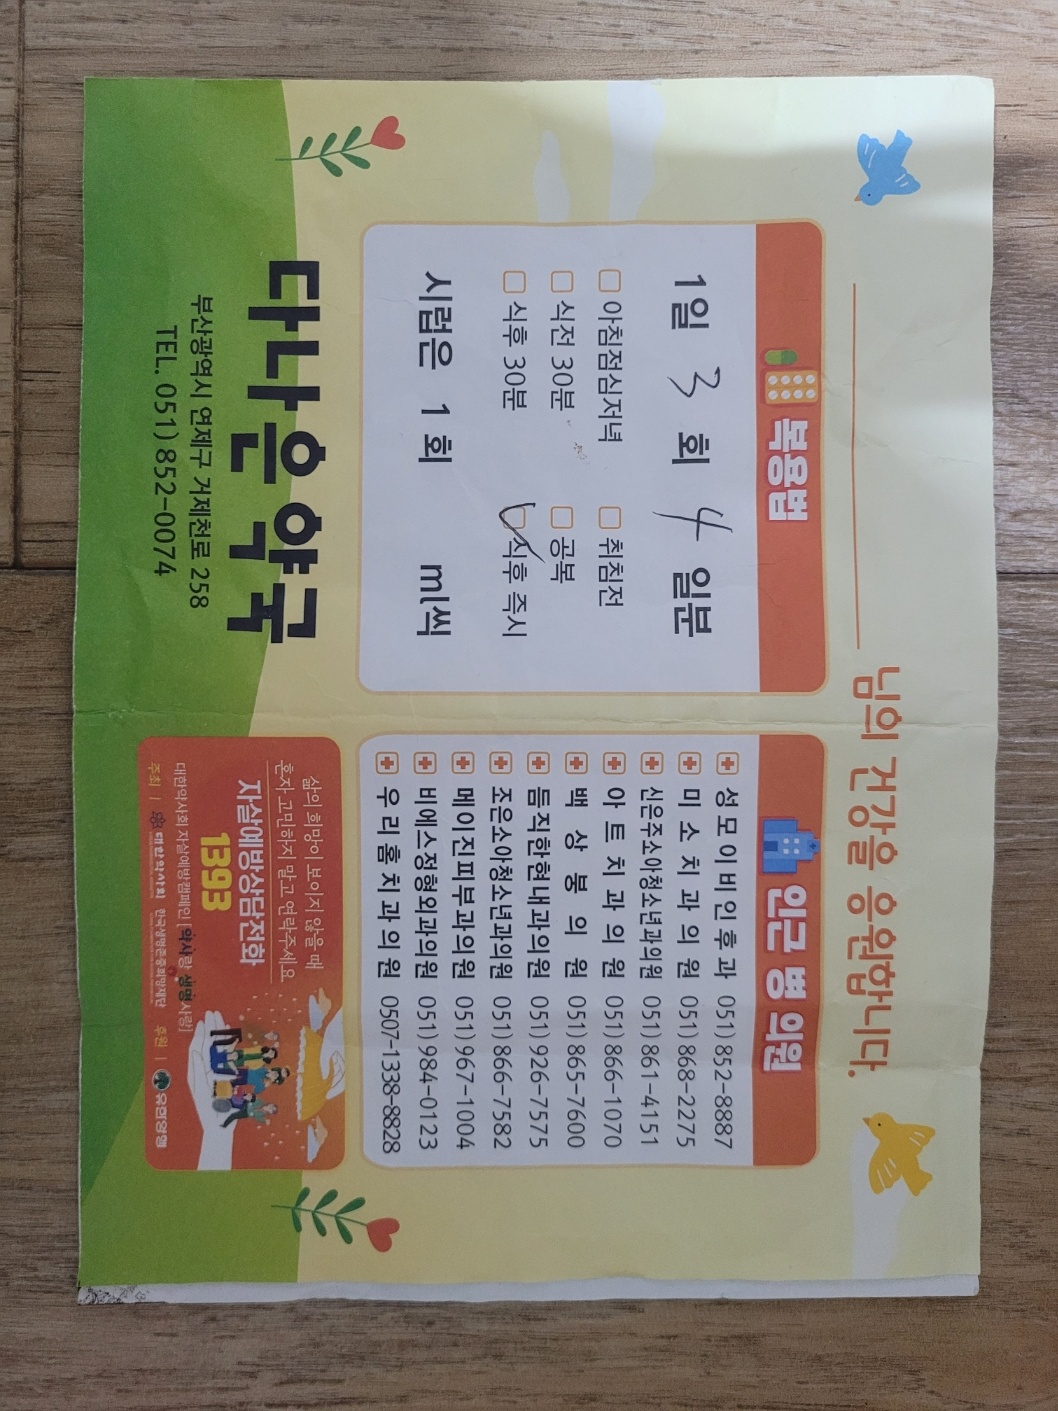 님의 건강을 응원합니다.
복용법
1일 3 회 4 일분
아침점심저녁 취침전
식전 30분 공복
식후 30분 식후 즉시
시럽은 1 회 ml씩
인근 병 의원
성모이비인후과 051) 852-8887
미소치과의원 051) 868-2275
신은주소아청소년과의원 051) 861-4151
아트치과의원 051) 866-1070
백상봉의원 051) 865-7600
듬직한현내과의원 051) 926-7575
조은소아청소년과의원 051) 866-7582
메이진피부과의원 051) 967-1004
비에스정형외과의원 051) 984-0123
우리홈치과의원 0507-1338-8828
다나은약국
부산광역시 연제구 거제천로 258
TEL. 051) 852-0074
삶의 희망이 보이지 않을 때
혼자 고민하지 말고 연락주세요
자살예방상담전화
1393
대한약사회 자살예방캠페인 [약사랑 생명사랑]
주최 | 대한약사회 한국생명존중희망재단 후원 | 유한양행